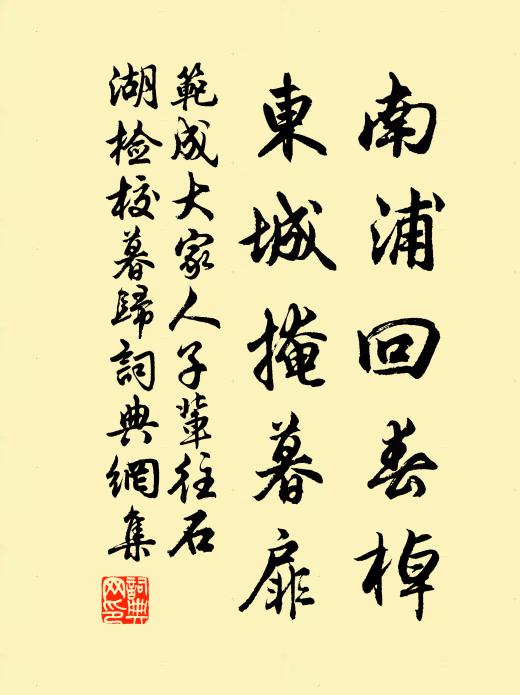 南浦回春棹
東城掩暮扉
範成大家人子輩往石
湖檢校暮歸詞典網集
詞典網印